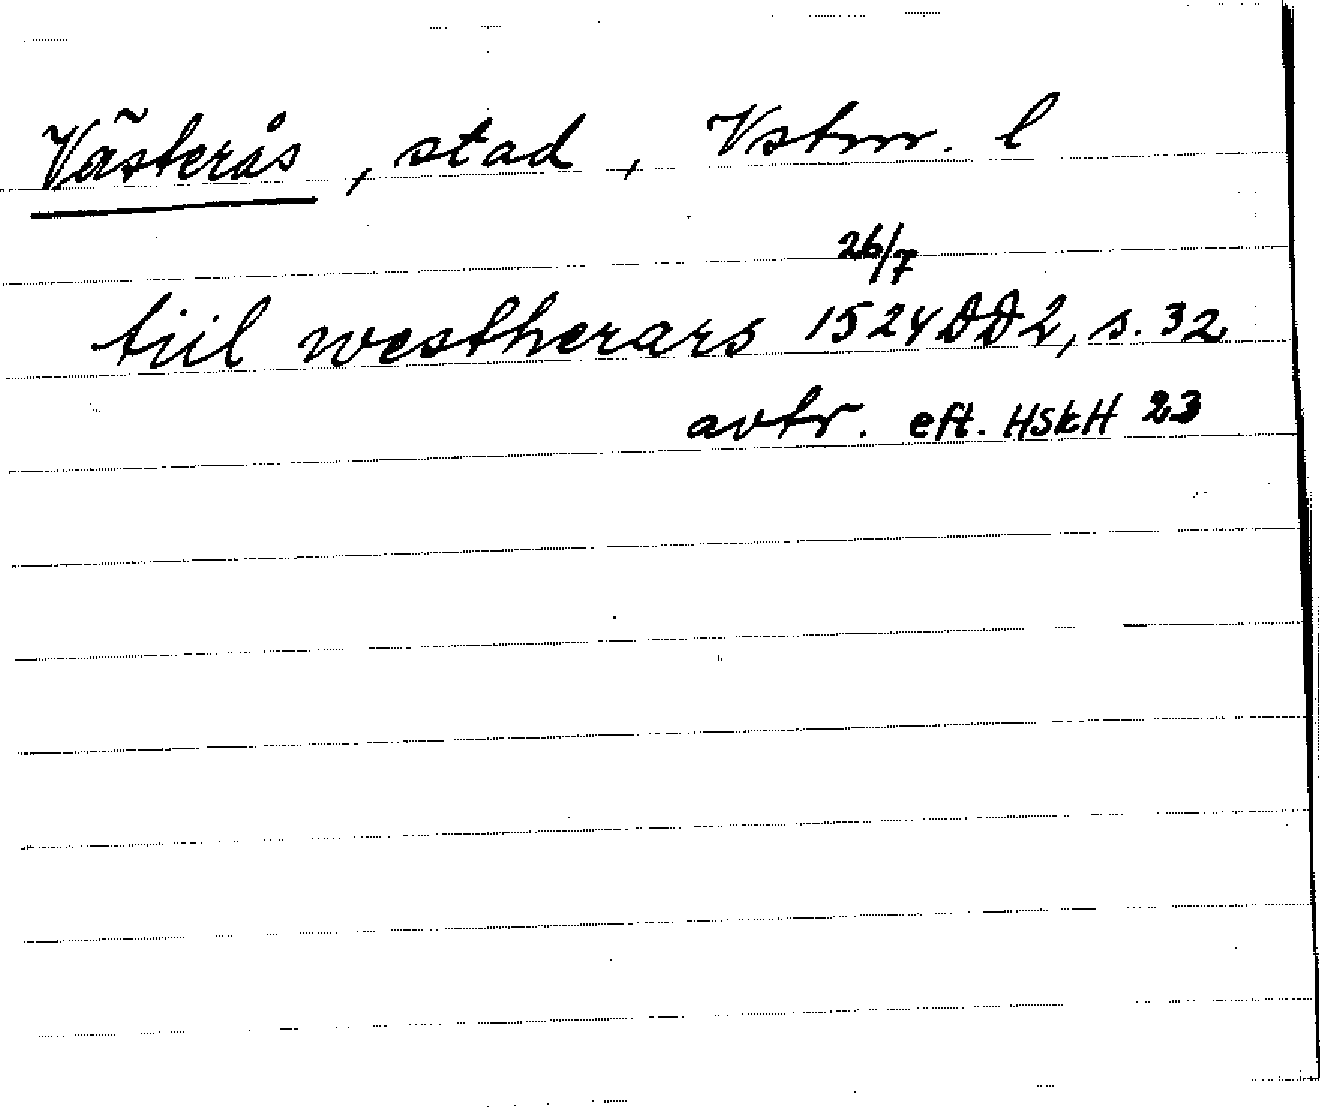 Västerås, stad, Vstm. l
26/7
tiil westherars 1524 DD2, s. 32
avtr. eft. HSkH 23